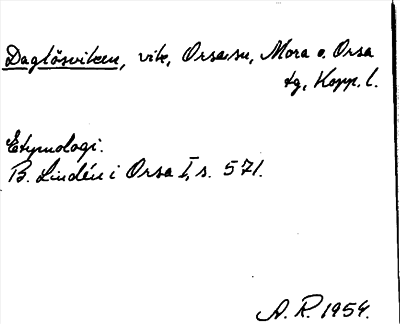 Daglösviken, vik, Orsasjön, Mora o. Orsa
tg, Kopp. l.
Etymologi.
B. Lindén i Orsa I, s. 571.
A. R. 1954.